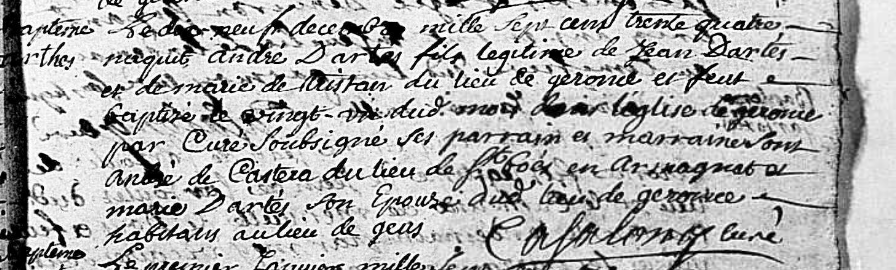 bapteme Le dix neuf decembre mille sept cent trente quatre
arthes naquit andré Dartes fils legitime de Jean Dartés
et de marie de tristan du lieu de geronce et feut
baptizé le vingt-un dud. mois dans léglise de geronce
par Curé soubsigné ses parrain et marraine sont
andré de Castera du lieu de en armagnat et
marie Dartés son Epouze dud. lieu de geronce
habitans au lieu de geus Casalong curé
bapteme Le premier Janvier mille